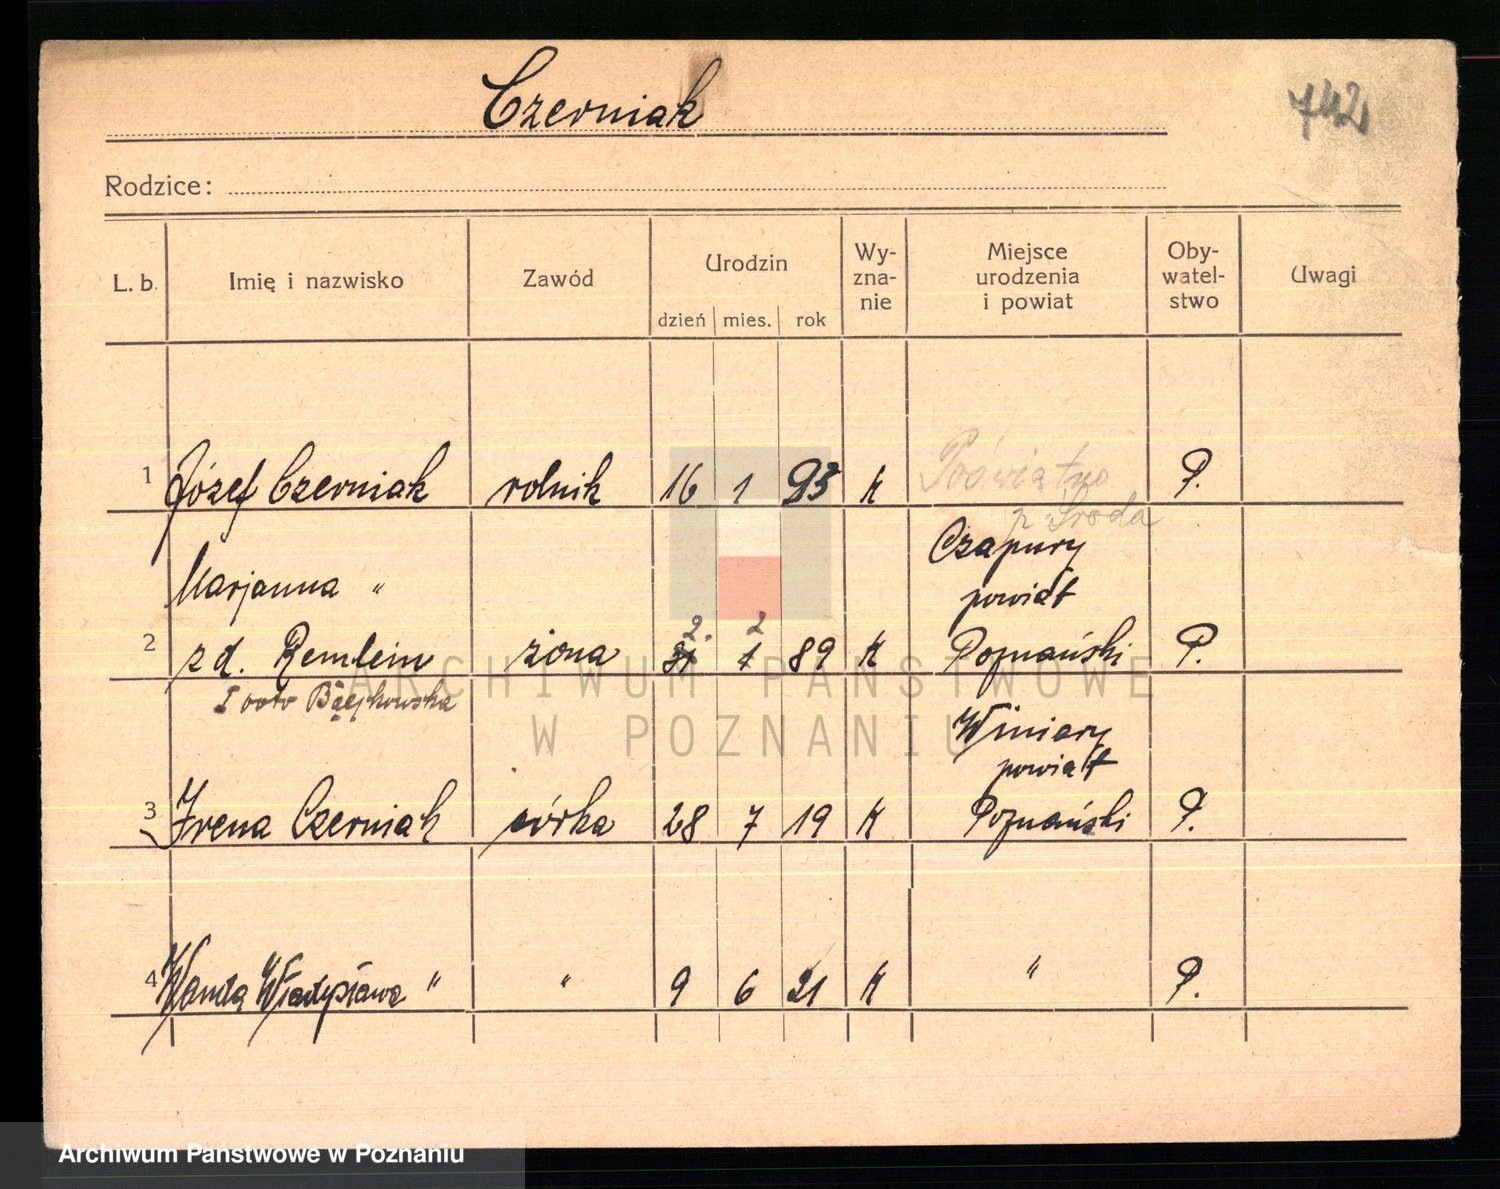 Czerniak
742
Rodzice:
L. b. Imię i nazwisko Zawód Urodzin dzień mies. rok Wy-zna-nie Miejsce urodzenia i powiat Oby-watel-stwo Uwagi
1 Józef Czerniak rolnik 16 1 93 K Poświątno P.
p Środa
Marjanna " Czapury
powiat
2. 2
2 zd. Remlein żona 31 1 89 K Poznański P.
I voto
Winiary
powiat
3 Irena Czerniak córka 28 7 19 K Poznański P.
4 Wanda Władysława " " 9 6 21 K " P.
ARCHIWUM PAŃSTWOWE
W POZNANIU
Archiwum Państwowe w Poznaniu